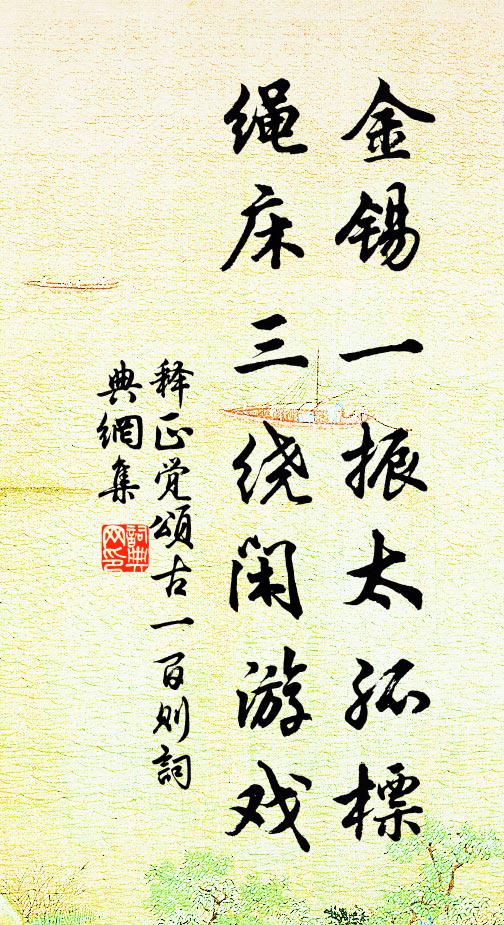 金锡一振太孤標
绳床三绕闲游戏
释正觉颂古一百则词
典網集
詞典网印